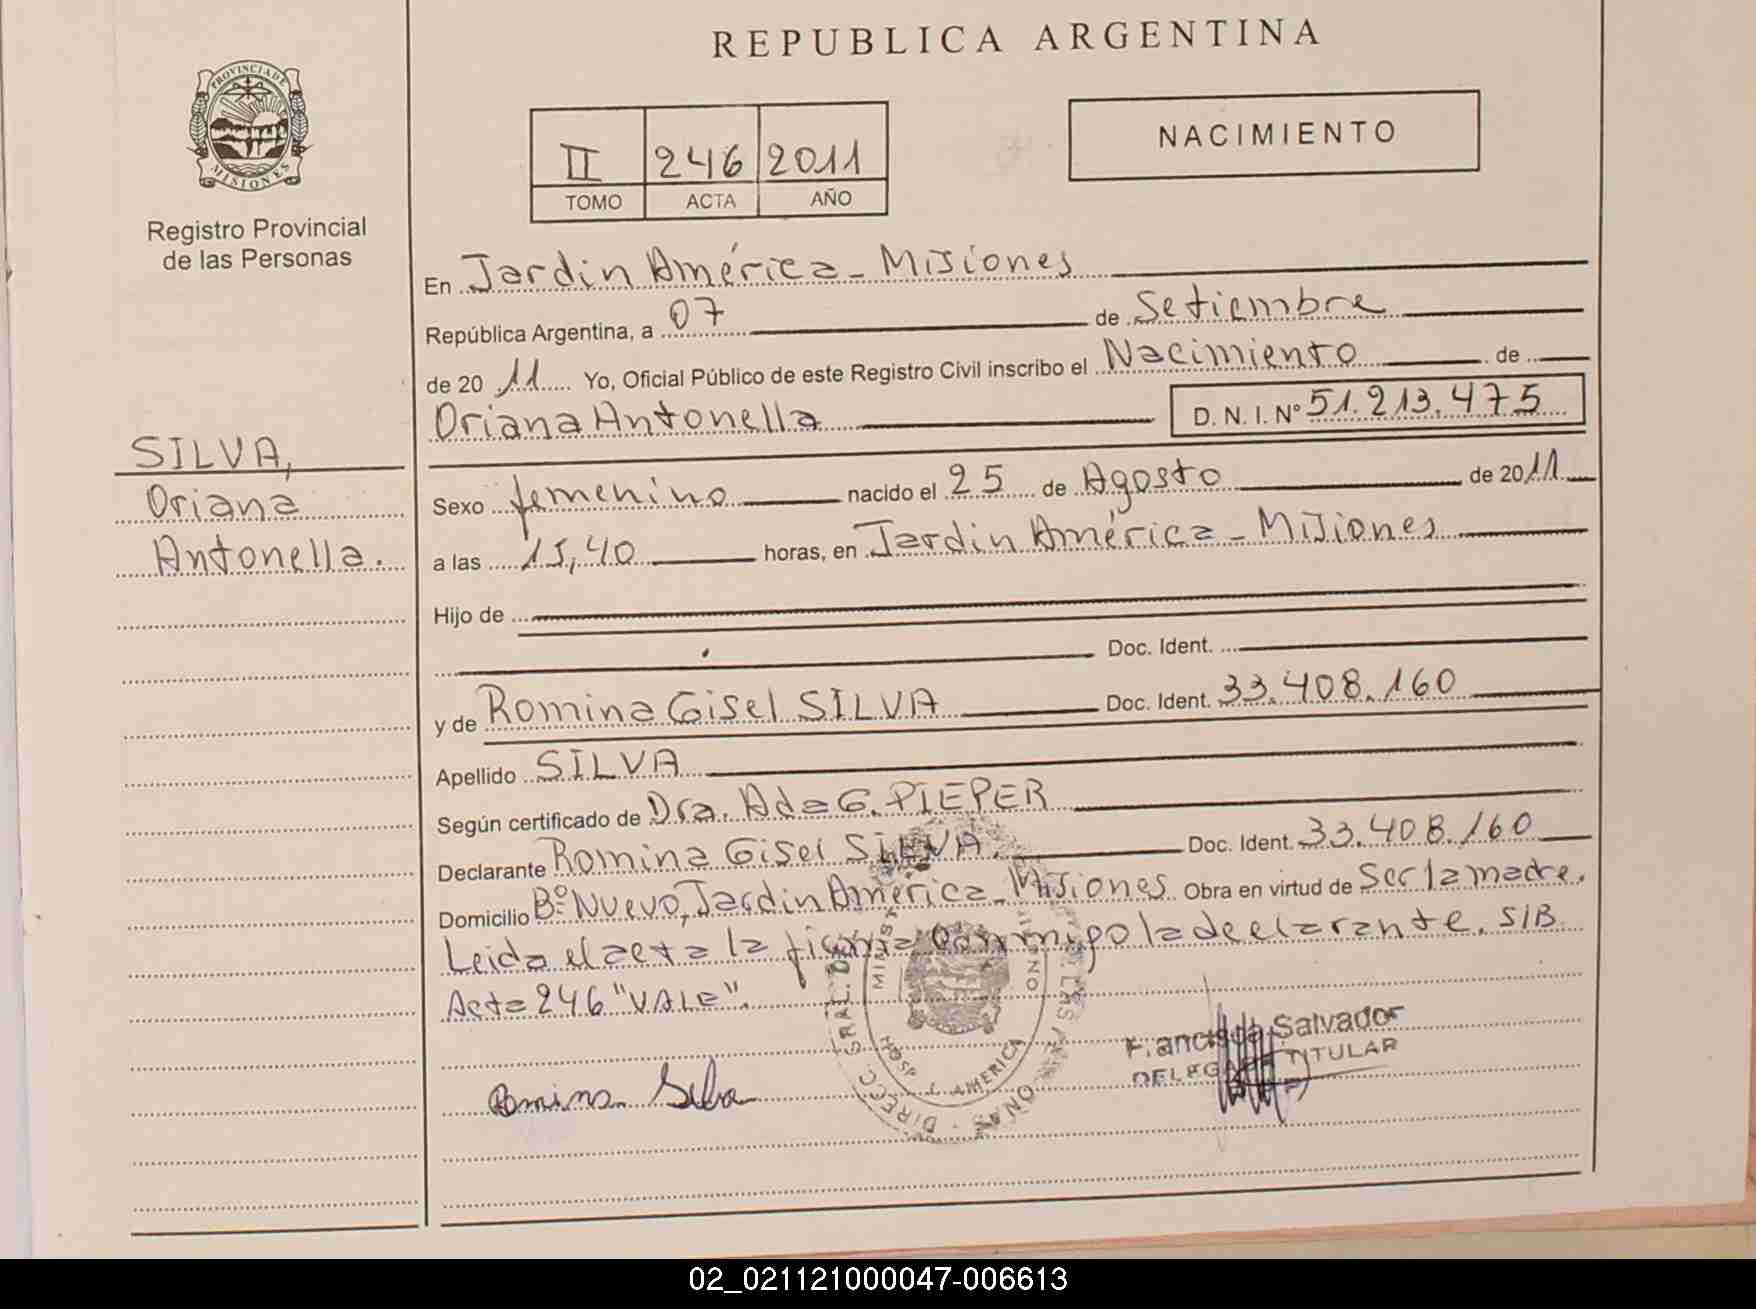 REPUBLICA ARGENTINA
PROVINCIA DE
MISIONES
Registro Provincial
de las Personas
II 246 2011
TOMO ACTA AÑO
NACIMIENTO
SILVA,
Oriana
Antonella.
En Jardin América - Misiones
República Argentina, a 07 de Setiembre
de 20 11 Yo, Oficial Público de este Registro Civil inscribo el Nacimiento de
Oriana Antonella D. N. I. Nº 51.213.475
Sexo femenino nacido el 25 de Agosto de 2011
a las 15,40 horas, en Jardin América - Misiones
Hijo de
Doc. Ident.
y de Romina Gisel SILVA Doc. Ident. 33.408.160
Apellido SILVA
Según certificado de Dra. Ada G. PIEPER
Declarante Romina Gisel SILVA. Doc. Ident. 33.408.160
Domicilio Bº Nuevo, Jardin América - Misiones Obra en virtud de Ser la madre.
Leida el acta la firma conmigo la declarante. S/B
Acta 246 "VALE".
DIRECC. GRAL. DE LAS
HOSP J. AMERICA
Francisca Salvador
TITULAR
Romina Silva
02_021121000047-006613